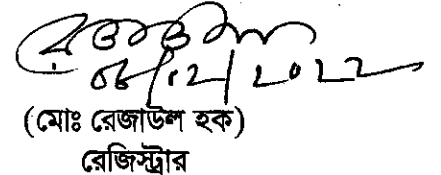 06/12/2022
(মোঃ রেজাউল হক)
রেজিস্ট্রার